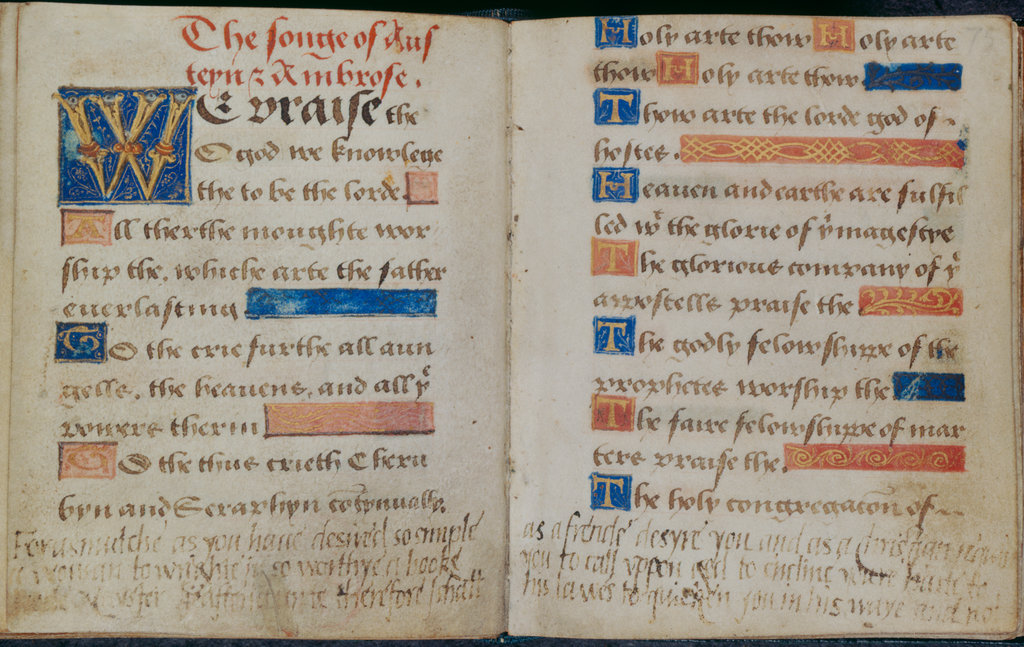 The songe of Aus
teyn & Ambrose.
WE praise the
O god we knowlege
the to be the lorde.
All therthe moughte wor
ship the, whiche arte the father
euerlasting
To the crie furthe all aun
gells, the heauens, and all yͤ
powers therin
To the thus crieth Cheru
byn and Seraphyn contynually.
Forasmutche as you have desired so simple
a woman to wrighte in so worthye a booke
good mayster lieftenaunte therefore I shall
Holy arte thow Holy arte
thow Holy arte thow
Thow arte the lorde god of
hostes.
Heauen and earthe are fulfil
led wᵗ the glorie of yͥ magestye
The glorious company of yͤ
appostells praise the
The godly felowshippe of the
prophetes worship the
The faire felowshippe of mar
ters praise the.
The holy congregacōn of
as a frende desyre you and as a christian require
you to call uppon god to encline youre harte to
his lawes to quicken you in his waye and not